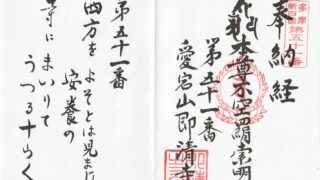 多摩
新四国
第五十一番
奉納経
本尊不空羂索明
第五十一番
愛宕山即清寺
第五十一番
西方をよそとは見まじ
安養の
寺にまいりて
うくる十らく